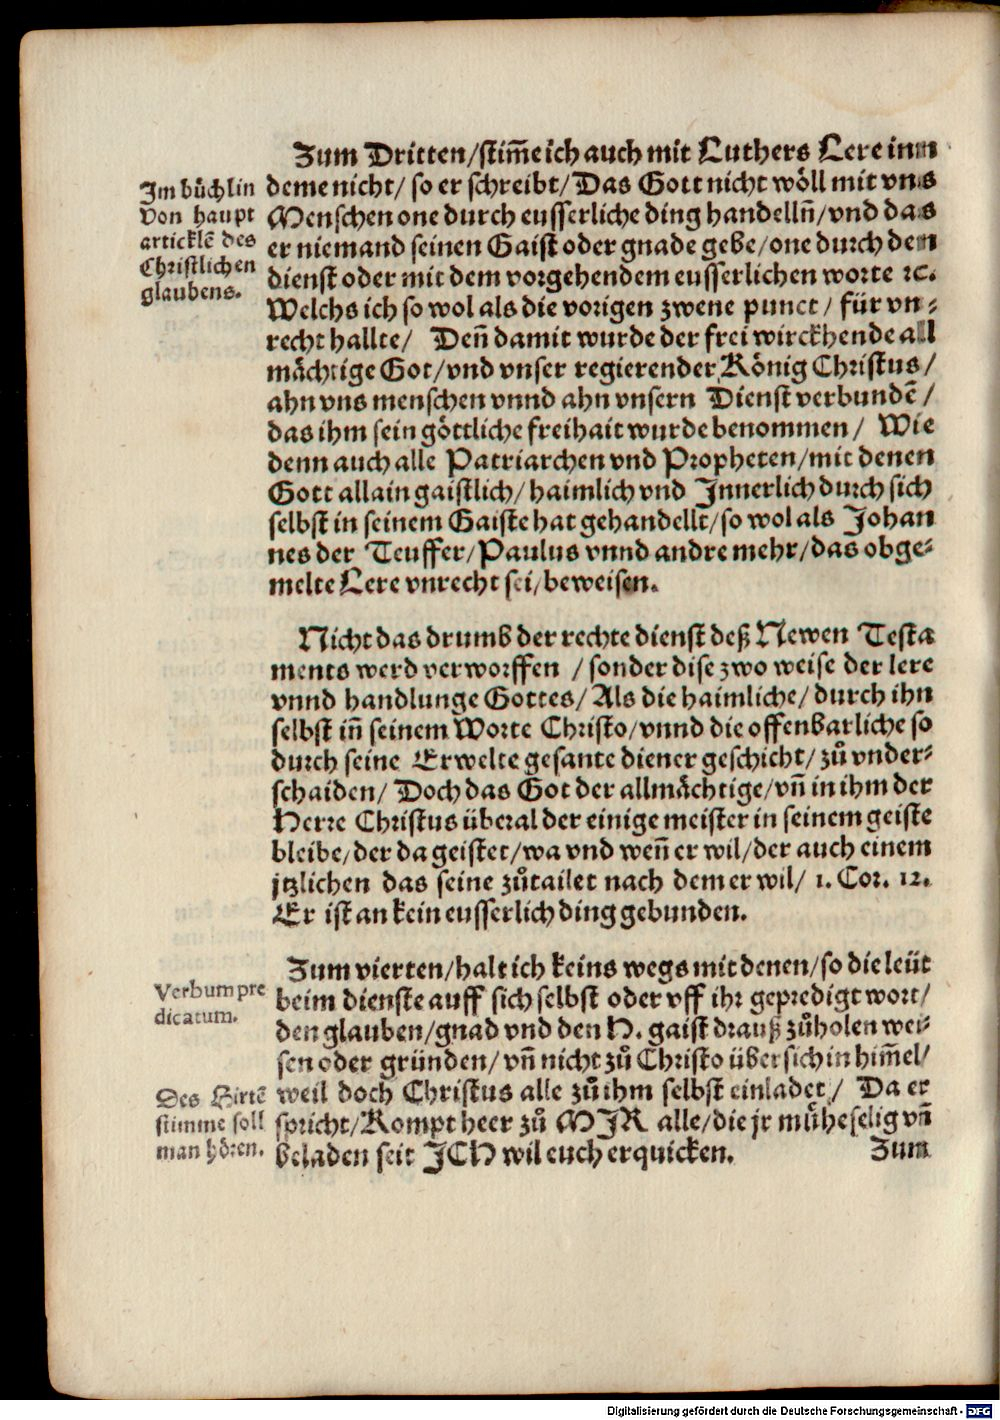 Zum Dritten/stim̃e ich auch mit Luthers Lere inn
Im büchlin
Von haupt
articklẽ des
Christlichen
glaubens.
deme nicht/ so er schreibt/ Das Gott nicht wöll mit vns
Menschen one durch eusserliche ding handelln̄/ vnd das
er niemand seinen Gaist oder gnade gebe/ one durch den
dienst oder mit dem vorgehendem eusserlichen worte ꝛc.
Welchs ich so wol als die vorigen zwene punct/ für vn⸗
recht hallte/ Den̄ damit wurde der frei wirckhende all
mächtige Got/ vnd vnser regierender König Christus/
ahn vns menschen vnnd ahn vnsern Dienst verbundẽ/
das ihm sein göttliche freihait wurde benommen/ Wie
denn auch alle Patriarchen vnd Propheten/ mit denen
Gott allain gaistlich/ haimlich vnd Innerlich durch sich
selbst in seinem Gaiste hat gehandellt/ so wol als Johan
nes der Teuffer/ Paulus vnnd andre mehr/ das obge⸗
melte Lere vnrecht sei/ beweisen.
Nicht das drumb der rechte dienst deß Newen Testa
ments werd verworffen / sonder dise zwo weise der lere
vnnd handlunge Gottes/ Als die haimliche/ durch ihn
selbst in̄ seinem Worte Christo/ vnnd die offenbarliche so
durch seine Erwelte gesante diener geschicht/ zů vnder⸗
schaiden/ Doch das Got der allmächtige/ vn̄ in ihm der
Herre Christus überal der einige meister in seinem geiste
bleibe/ der da geistet/ wa vnd wen̄ er wil/ der auch einem
jtzlichen das seine zůtailet nach dem er wil/ 1. Cor. 12.
Er ist an kein eusserlich ding gebunden.
Zum vierten/ halt ich keins wegs mit denen/ so die leüt
Verbum pre
dicatum.
beim dienste auff sich selbst oder vff ihr gepredigt wort/
den glauben/ gnad vnd den H. gaist drauß zůholen wei⸗
sen oder gründen/ vn̄ nicht zů Christo über sich in him̃el/
Des Hirtẽ
stimme soll
man hören.
weil doch Christus alle zů ihm selbst einladet/ Da er
spricht/ Kompt heer zů MIR alle/ die jr müheselig vn̄
beladen seit ICH wil euch erquicken.
Zum
Digitalisierung gefördert durch die Deutsche Forschungsgemeinschaft - DFG